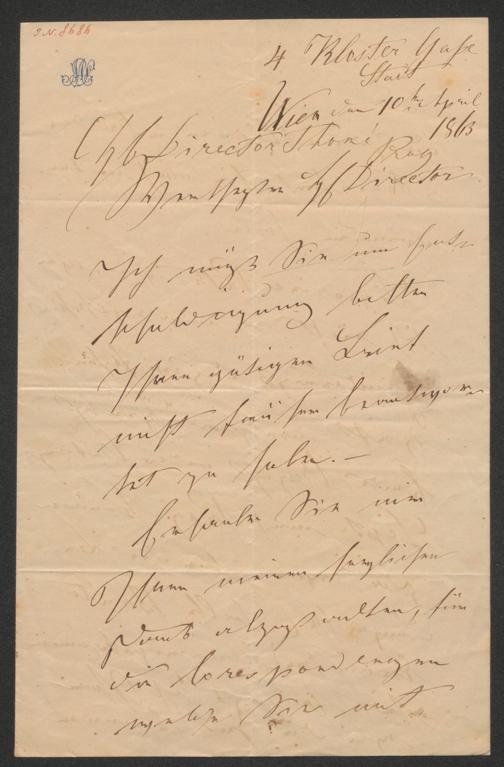 J.N. 8686
4 Kloster Gaße
Stadt
Wien den 10ten April
1863
Director Thomé
Prag
Director
Ich muß Sie um Ent-
schuldigung bitten
Ihren gütigen Brief
nicht früher beantwor-
tet zu haben. —
Erlauben Sie mir
Ihnen meinen herzlichsten
Dank abzustatten, für
die Correspondenzen
welche Sie mit